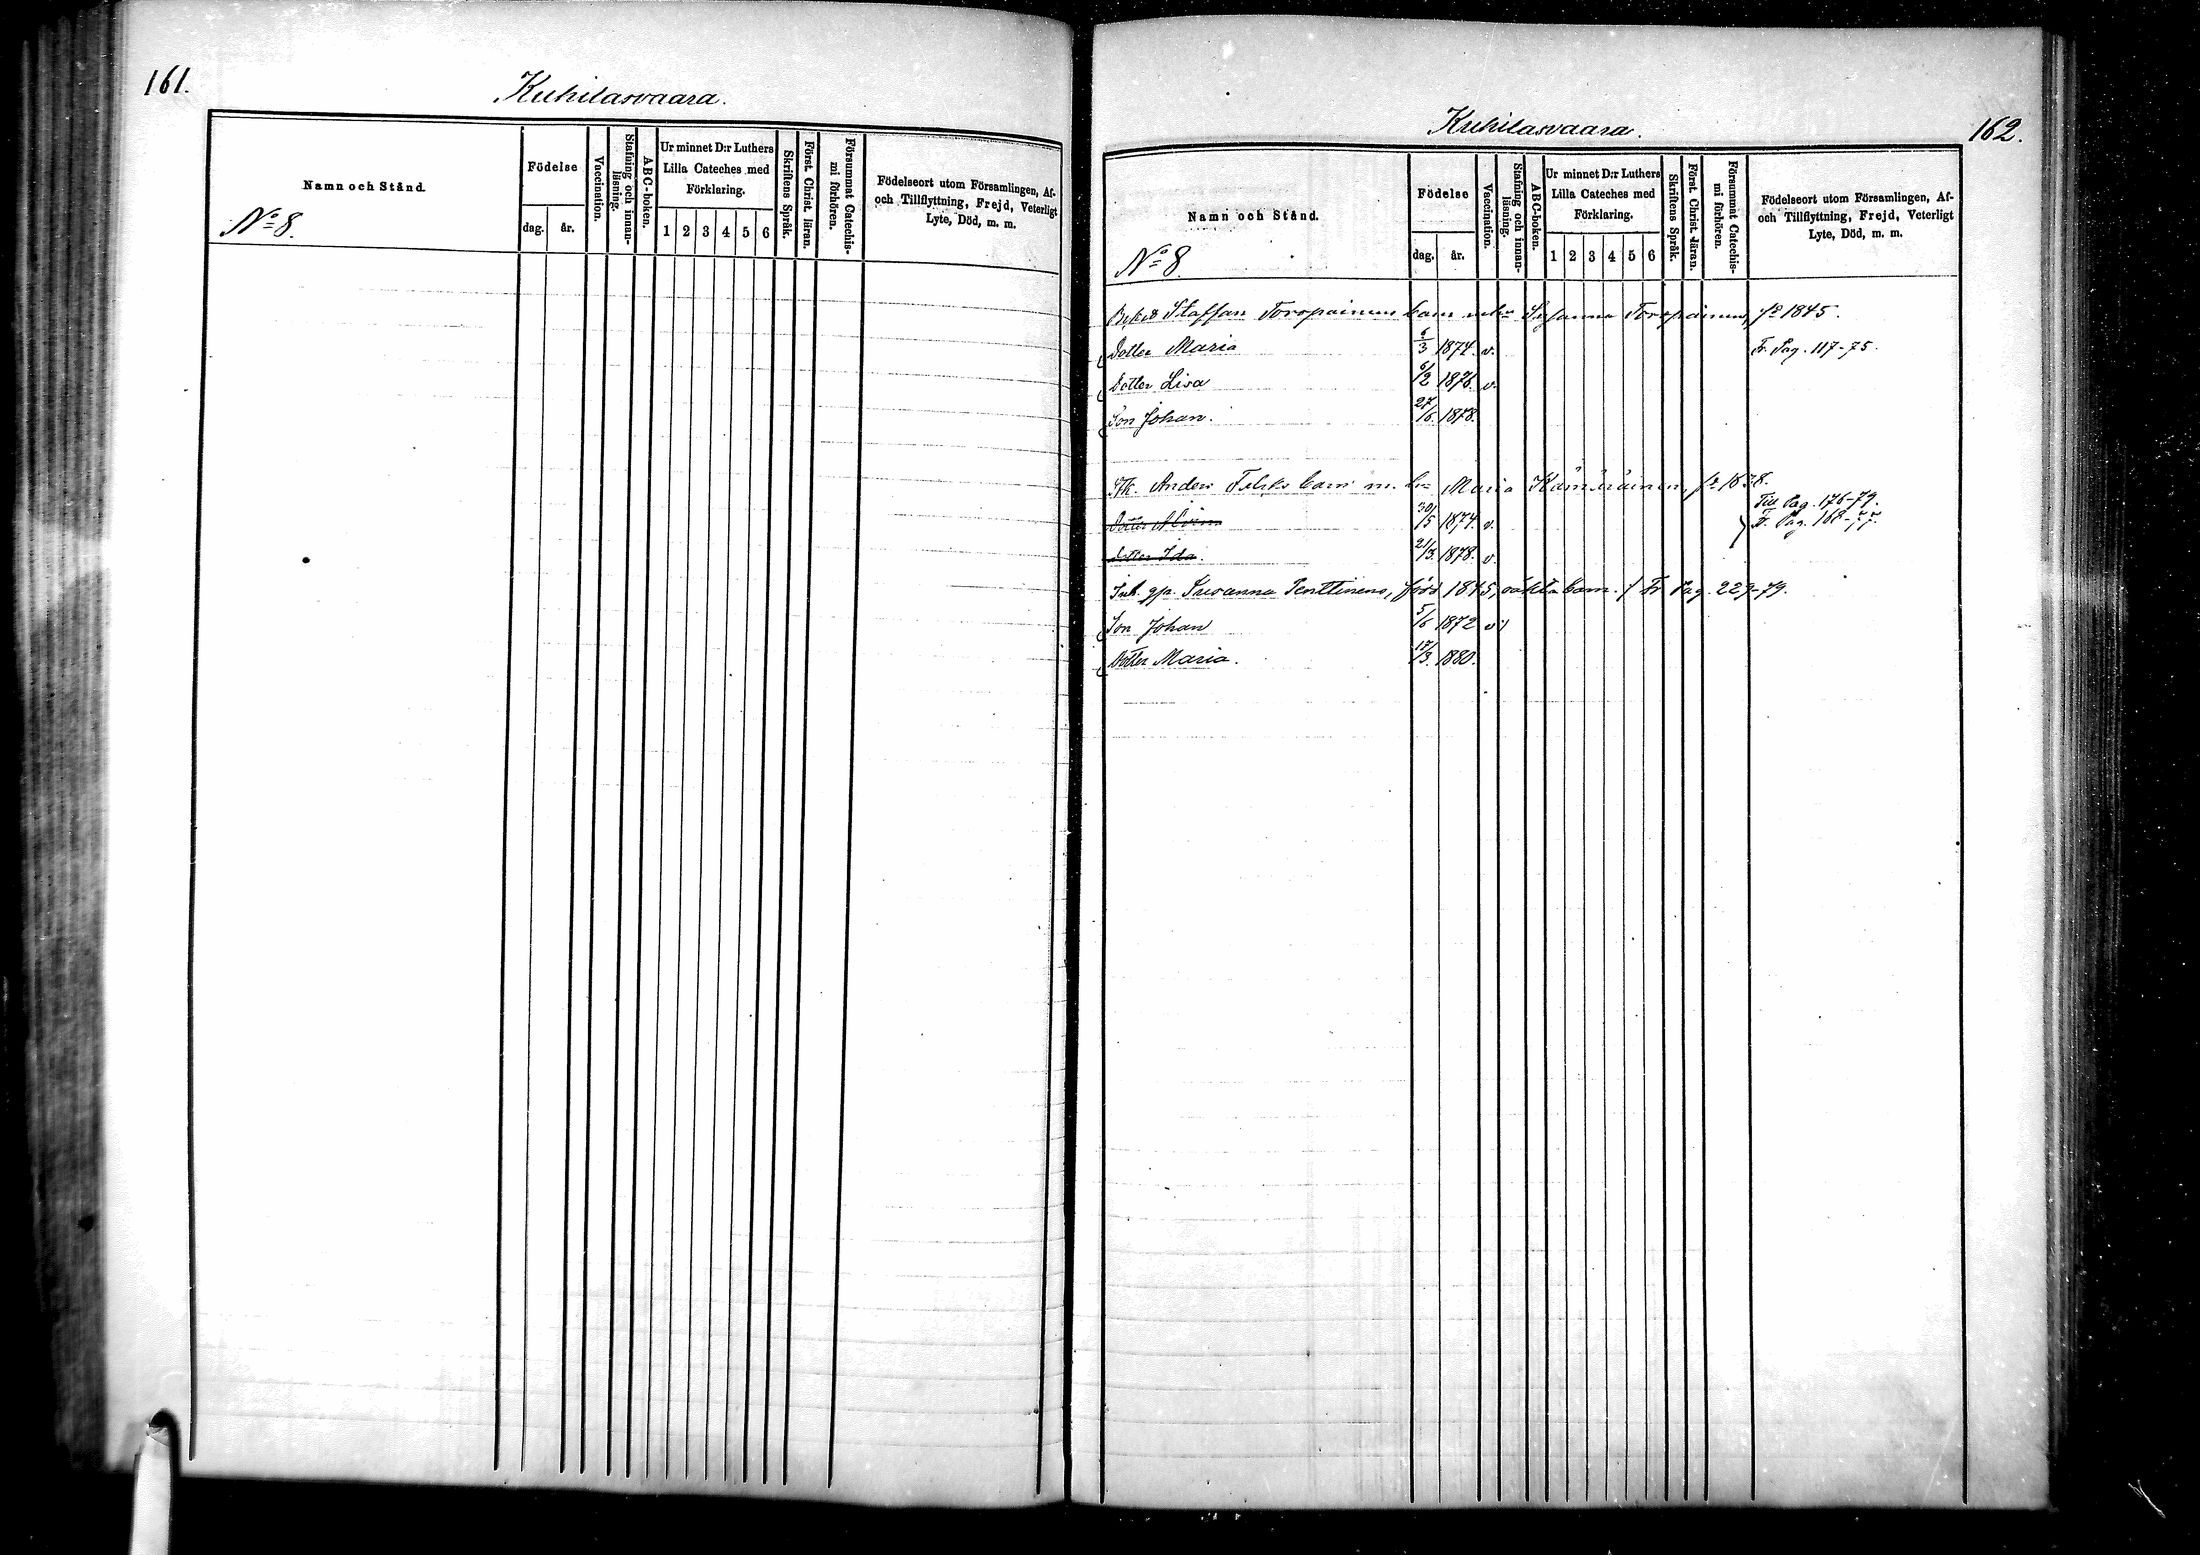 161.
Kuhilasvaara.
Namn och Stånd.
Födelse
dag.
år.
Vaccination.
Stafning och innan-
läsning.
ABC-boken.
Ur minnet D:r Luthers
Lilla Cateches med
Förklaring.
1 2 3 4 5 6
Skriftens Språk.
Först. Christ. läran.
Försummat Catechis-
mi förhören.
Födelseort utom Församlingen, Af-
och Tillflyttning, Frejd, Veterligt
Lyte, Död, m. m.
No 8.
Kuhilasvaara.
162.
Namn och Stånd.
Födelse
dag.
år.
Vaccination.
Stafning och innan-
läsning.
ABC-boken.
Ur minnet D:r Luthers
Lilla Cateches med
Förklaring.
1 2 3 4 5 6
Skriftens Språk.
Först. Christ. läran.
Försummat Catechis-
mi förhören.
Födelseort utom Församlingen, Af-
och Tillflyttning, Frejd, Veterligt
Lyte, Död, m. m.
No 8.
Staffan Toropainens barn Susanna Toropainen, 1845.
Dotter Maria 6/3 1874. v. Fr. Pag. 117-75.
Dotter Lisa 6/2 1876. v.
Son Johan. 27/6 1878.
Anders barn m. Maria Kämäräinen, 1838.
Till Pag. 176-79.
Dotter 30/5 1874. v. Fr. Pag. 168-77.
Dotter Ida. 21/3. 1878. v.
Susanna Penttinens, född 1845, oäkta barn. Fr Pag. 229-79.
Son Johan 5/6 1872 v.
Dotter Maria. 17/3. 1880.